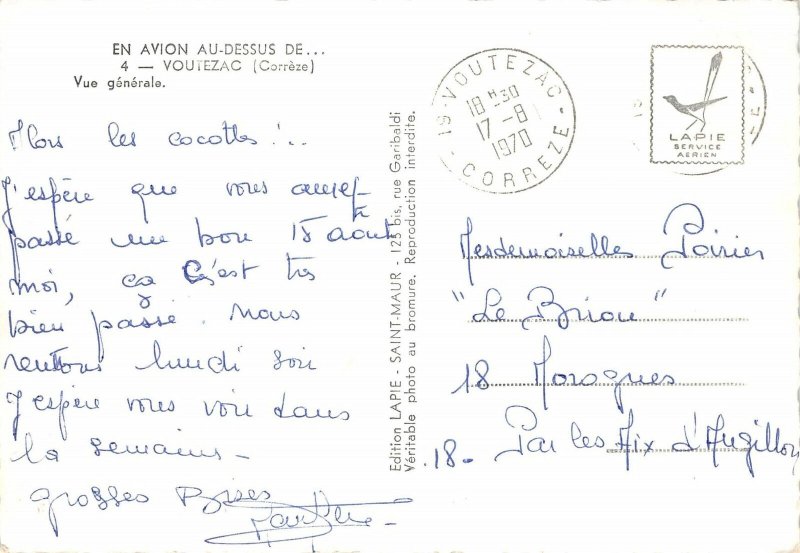 EN AVION AU-DESSUS DE...
4 — VOUTEZAC (Corrèze)
Vue générale.
Alors les cocottes !..
J'espère que vous avez
passé un bon 15 août
moi, ça s'est très
bien passé. Nous
rentrons lundi soir
J'espère vous voir dans
la semaine -
grosses Bises
Edition LAPIE - SAINT-MAUR - 125 bis, rue Garibaldi
Véritable photo au bromure. Reproduction interdite.
19 - VOUTEZAC -
18 H 30
17 - 8
1970
CORREZE
LAPIE
SERVICE
AERIEN
Mesdemoiselles Poirier
"Le Briou"
18 Morogues
18 - Par les Aix d'Angillon